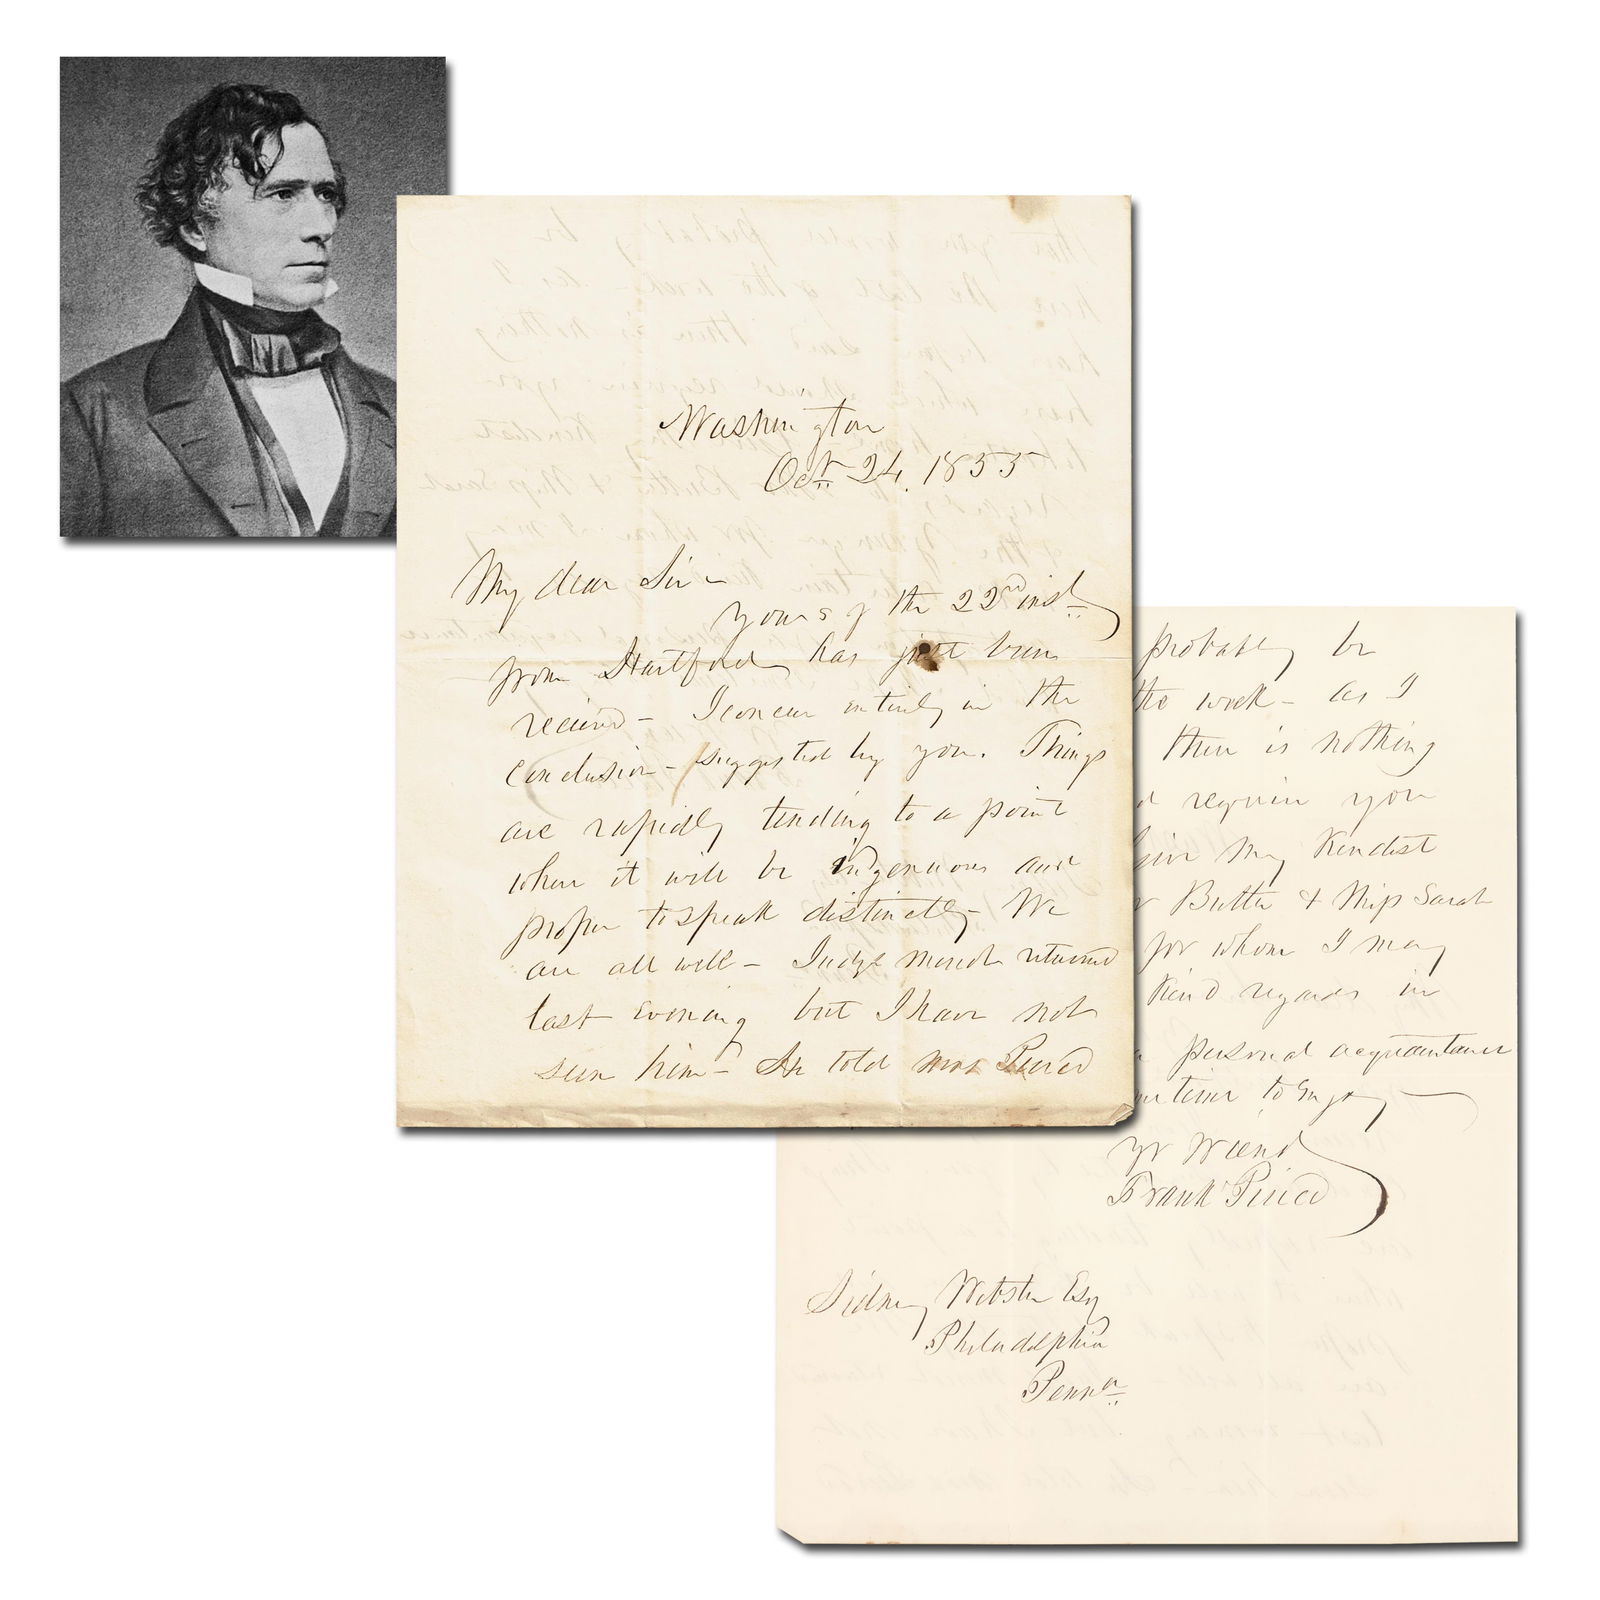 Washington
Octr 24, 1855
My dear Sir –
Yours of the 22nd inst
from Hartford has just been
received – I concur entirely in the
conclusion – suggested by you. Things
are rapidly tending to a point
when it will be ingenuous and
proper to speak distinctly – We
are all well – Judge returned
last evening but I have not
seen him – He told Mrs Pierce
probably be
the week – as I
there is nothing
require you
give my kindest
Butler & Miss Sarah
for whom I may
kind regards in
personal acquaintance
time to enjoy
Yr friend
Frank Pierce
Sidney Webster Esq
Philadelphia
Penna